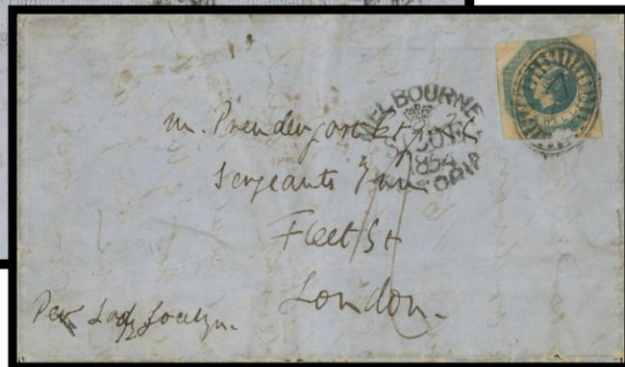 MELBOURNE
1854
Mr. Prendergast
Sergeants Inn
Fleet St
London.
Per Lady Jocelyn.